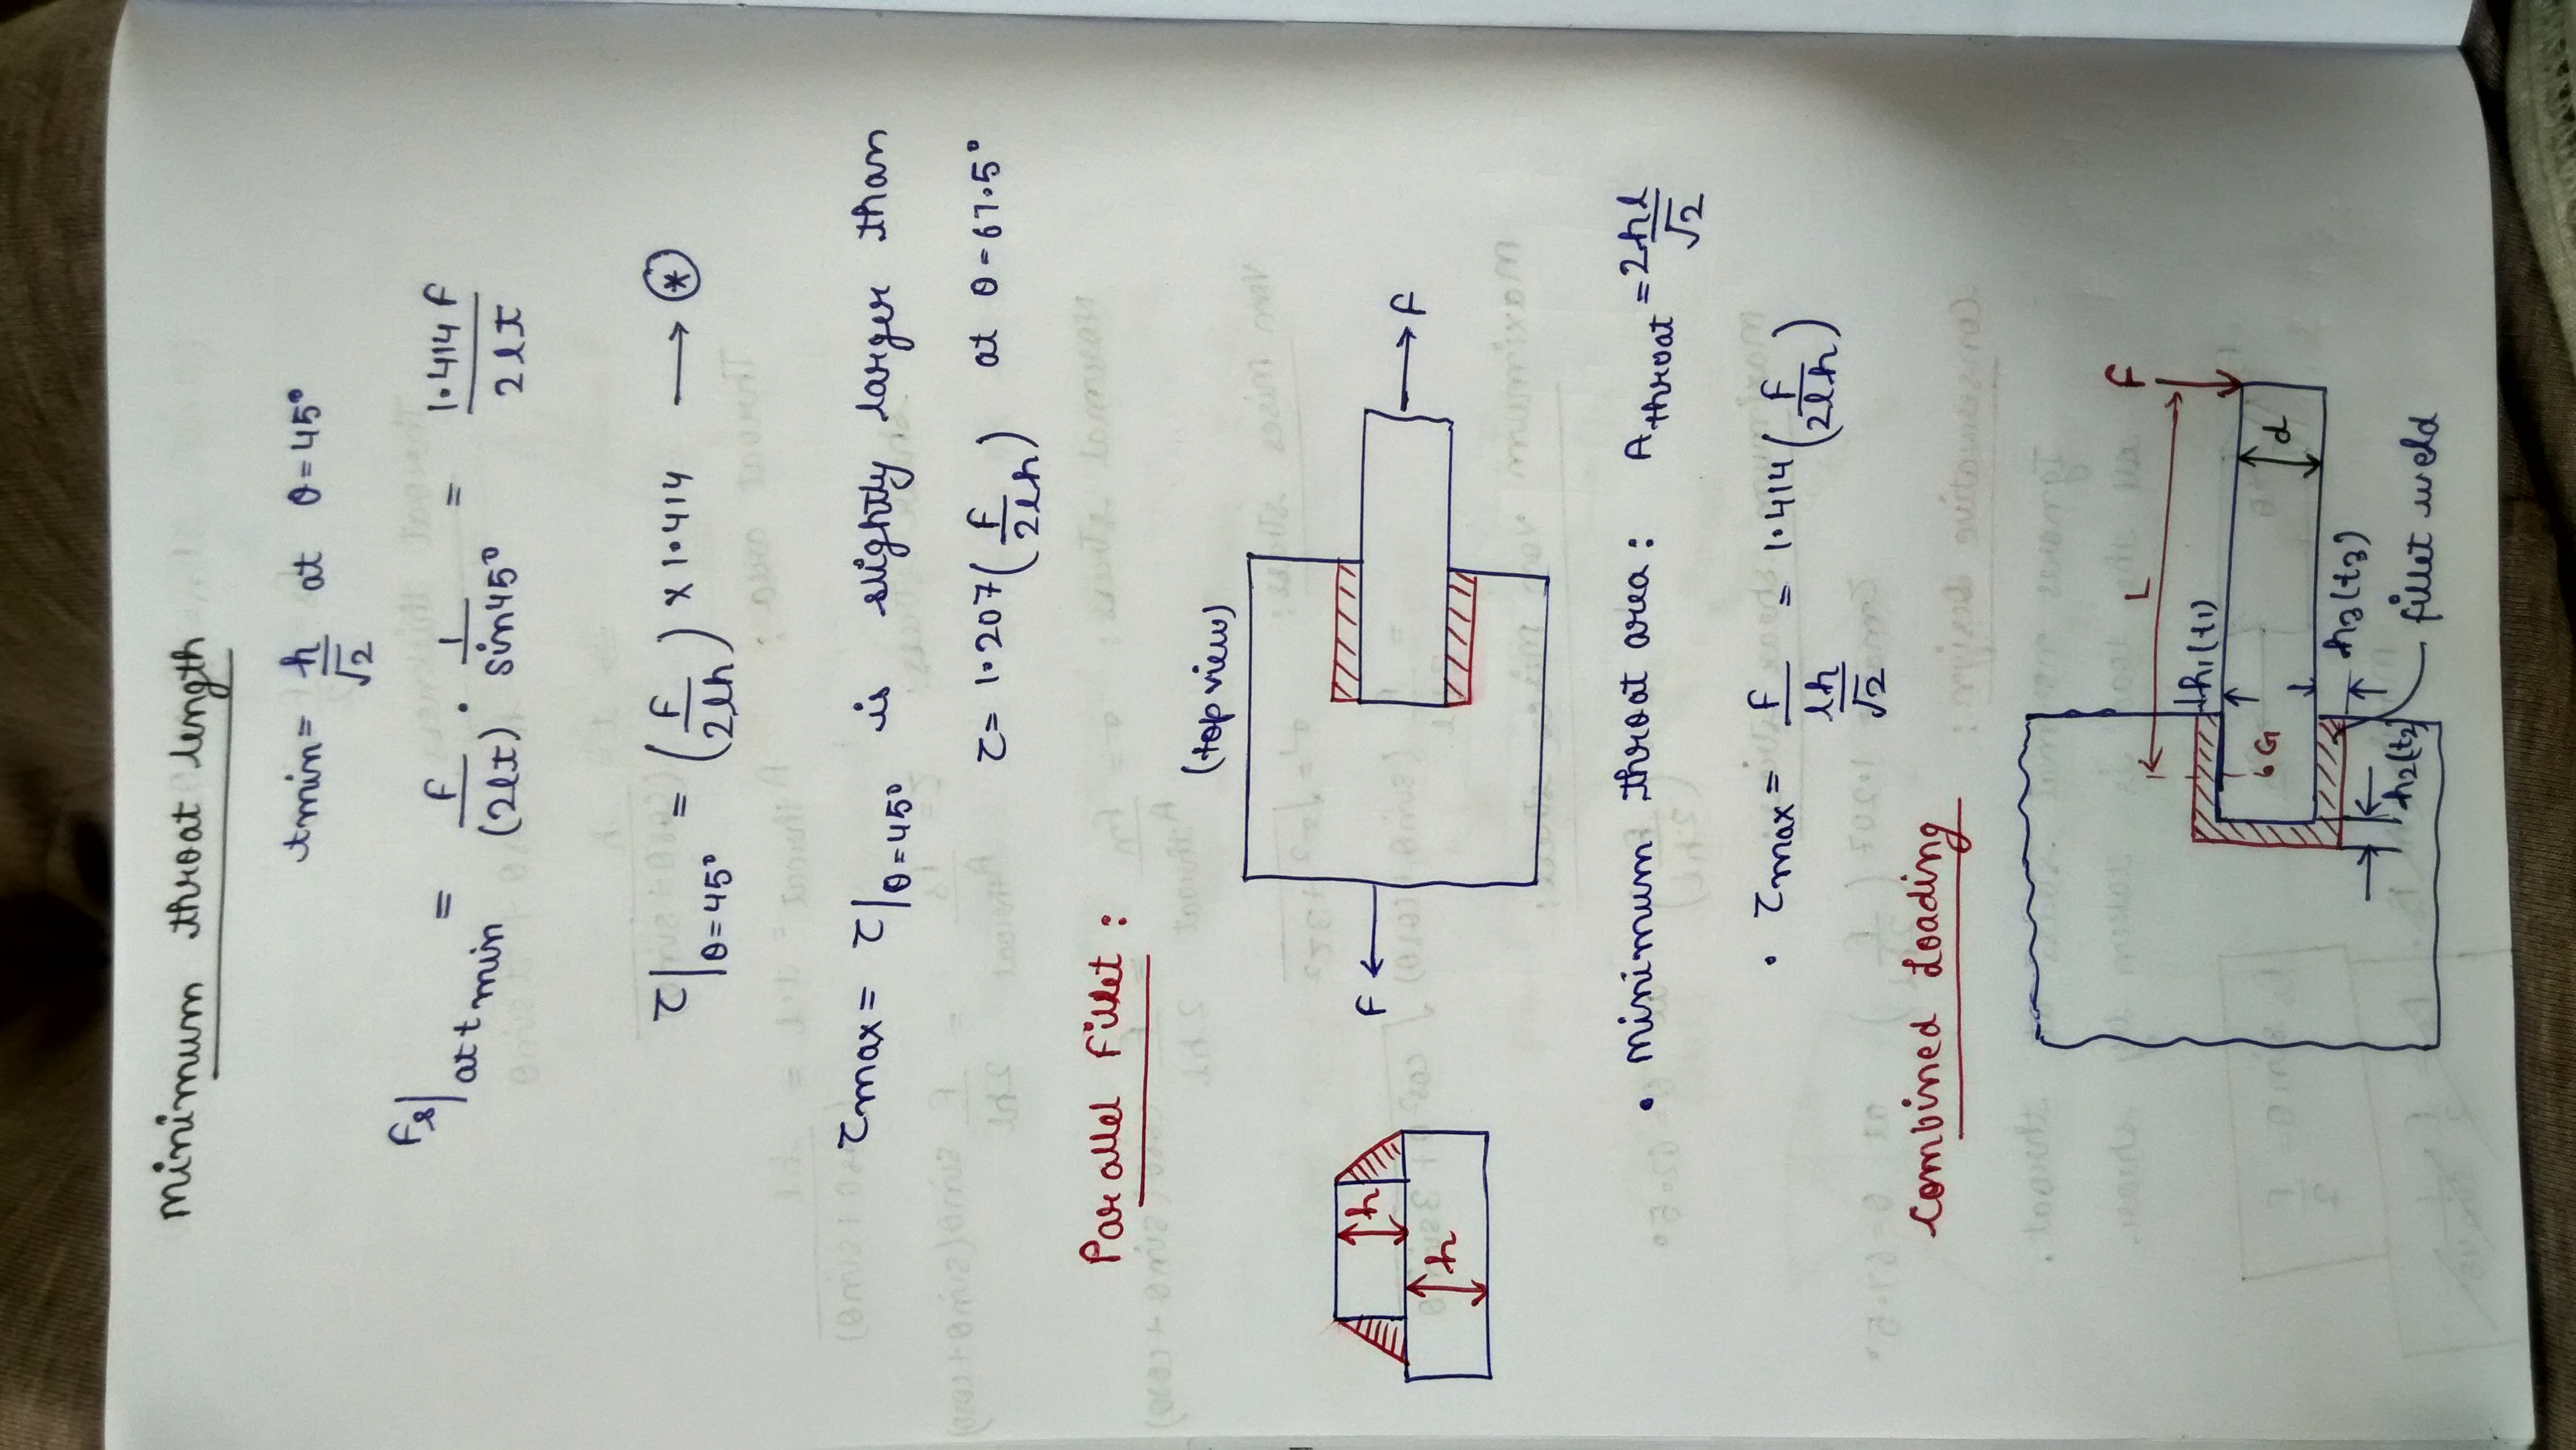 Minimum throat length
tmin = h/√2 at θ = 45°
Fs|at tmin = F/(2lt) · 1/sin45° = 1.414 F/2lt
τ|θ=45° = (F/2lh) × 1.414 → ⊛
τmax = τ|θ=45° is slightly larger than
τ = 1.207 (F/2lh) at θ = 67.5°
Parallel Fillet :
(top view)
h
h
F
F
• Minimum throat area : Athroat = 2hl/√2
• τmax = F/(lh/√2) = 1.414 (F/2lh)
Combined Loading
F
L
h1(t1)
G
d
h3(t3)
h2(t2)
fillet weld